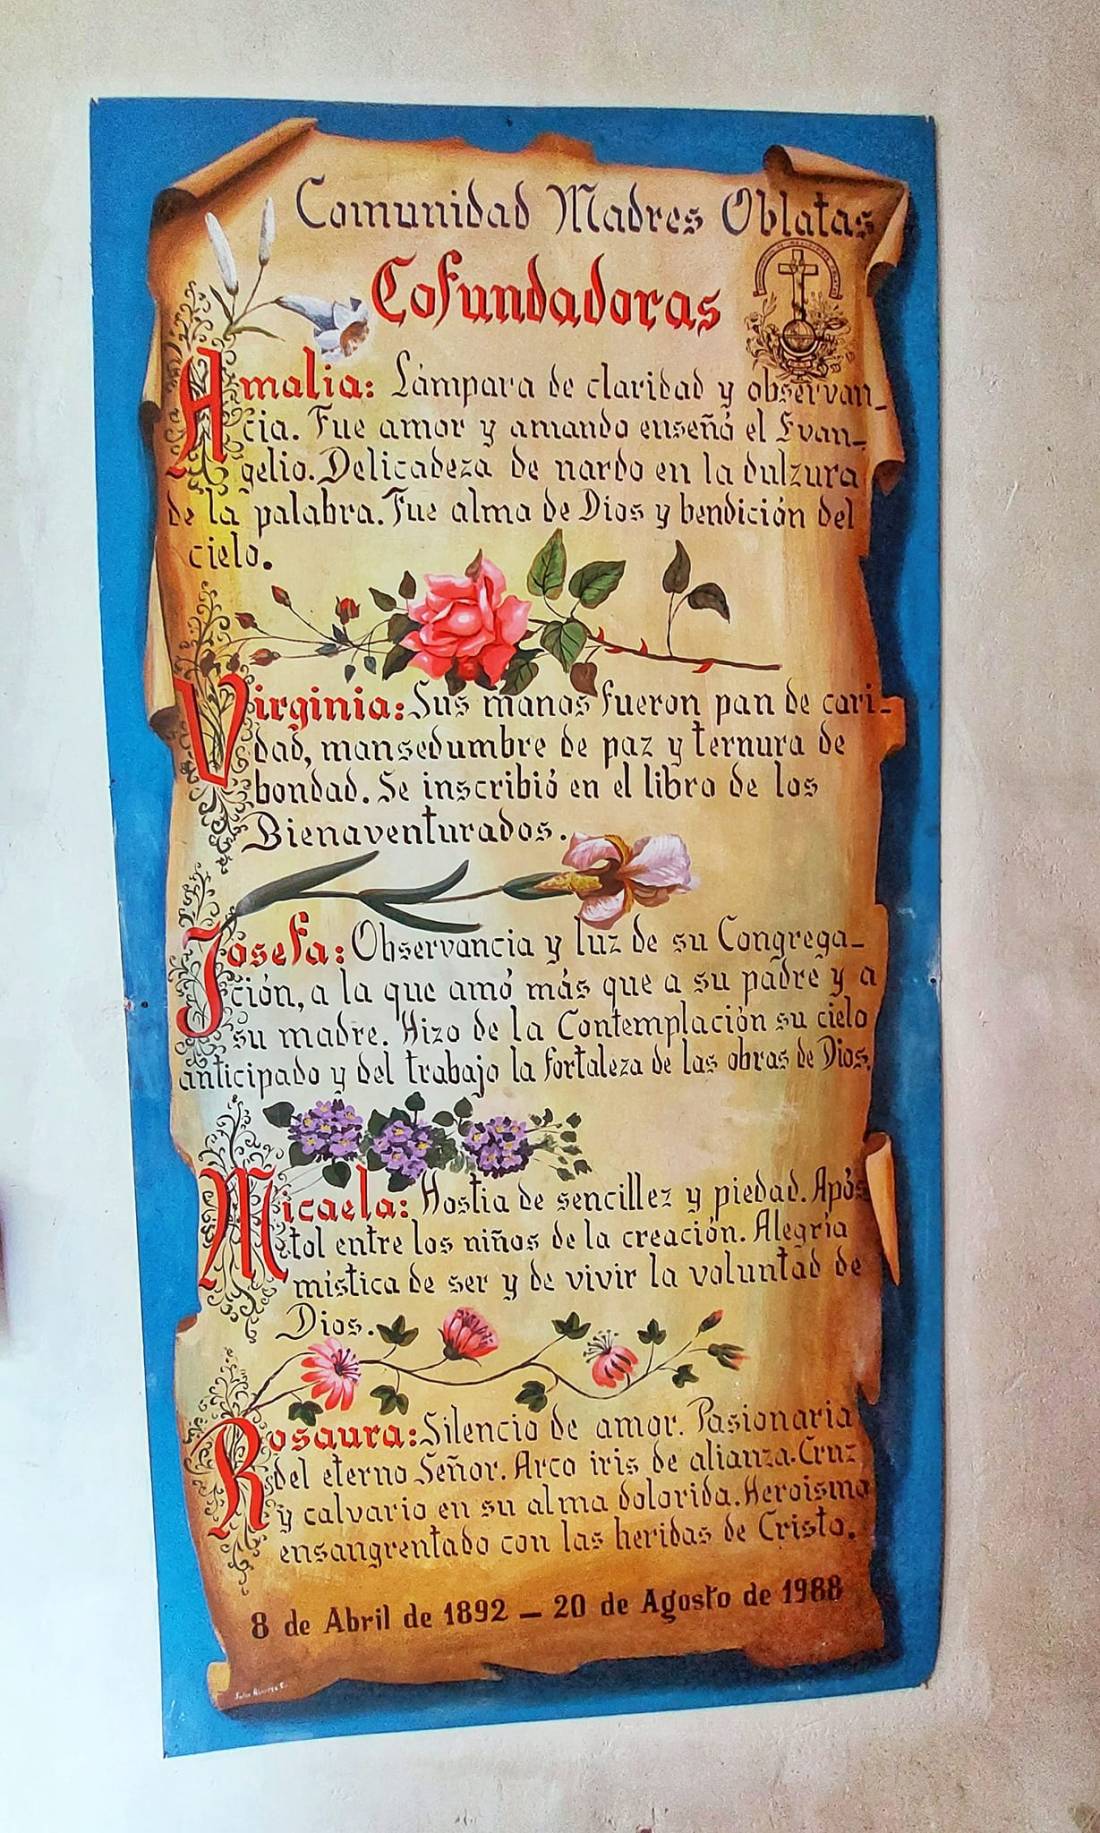 Comunidad Madres Oblatas
Cofundadoras
Amalia: Lámpara de claridad y observan-
cia. Fue amor y amando enseñó el Evan-
gelio. Delicadeza de nardo en la dulzura
de la palabra. Fue alma de Dios y bendición del
cielo.
Virginia: Sus manos fueron pan de cari-
dad, mansedumbre de paz y ternura de
bondad. Se inscribió en el libro de los
Bienaventurados.
Josefa: Observancia y luz de su Congrega-
ción, a la que amó más que a su padre y a
su madre. Hizo de la Contemplación su cielo
anticipado y del trabajo la fortaleza de las obras de Dios.
Micaela: Hostia de sencillez y piedad. Após
tol entre los niños de la creación. Alegría
mística de ser y de vivir la voluntad de
Dios.
Rosaura: Silencio de amor. Pasionaria
del eterno Señor. Arco iris de alianza. Cruz
y calvario en su alma dolorida. Heroismo
ensangrentado con las heridas de Cristo.
8 de Abril de 1892 - 20 de Agosto de 1988